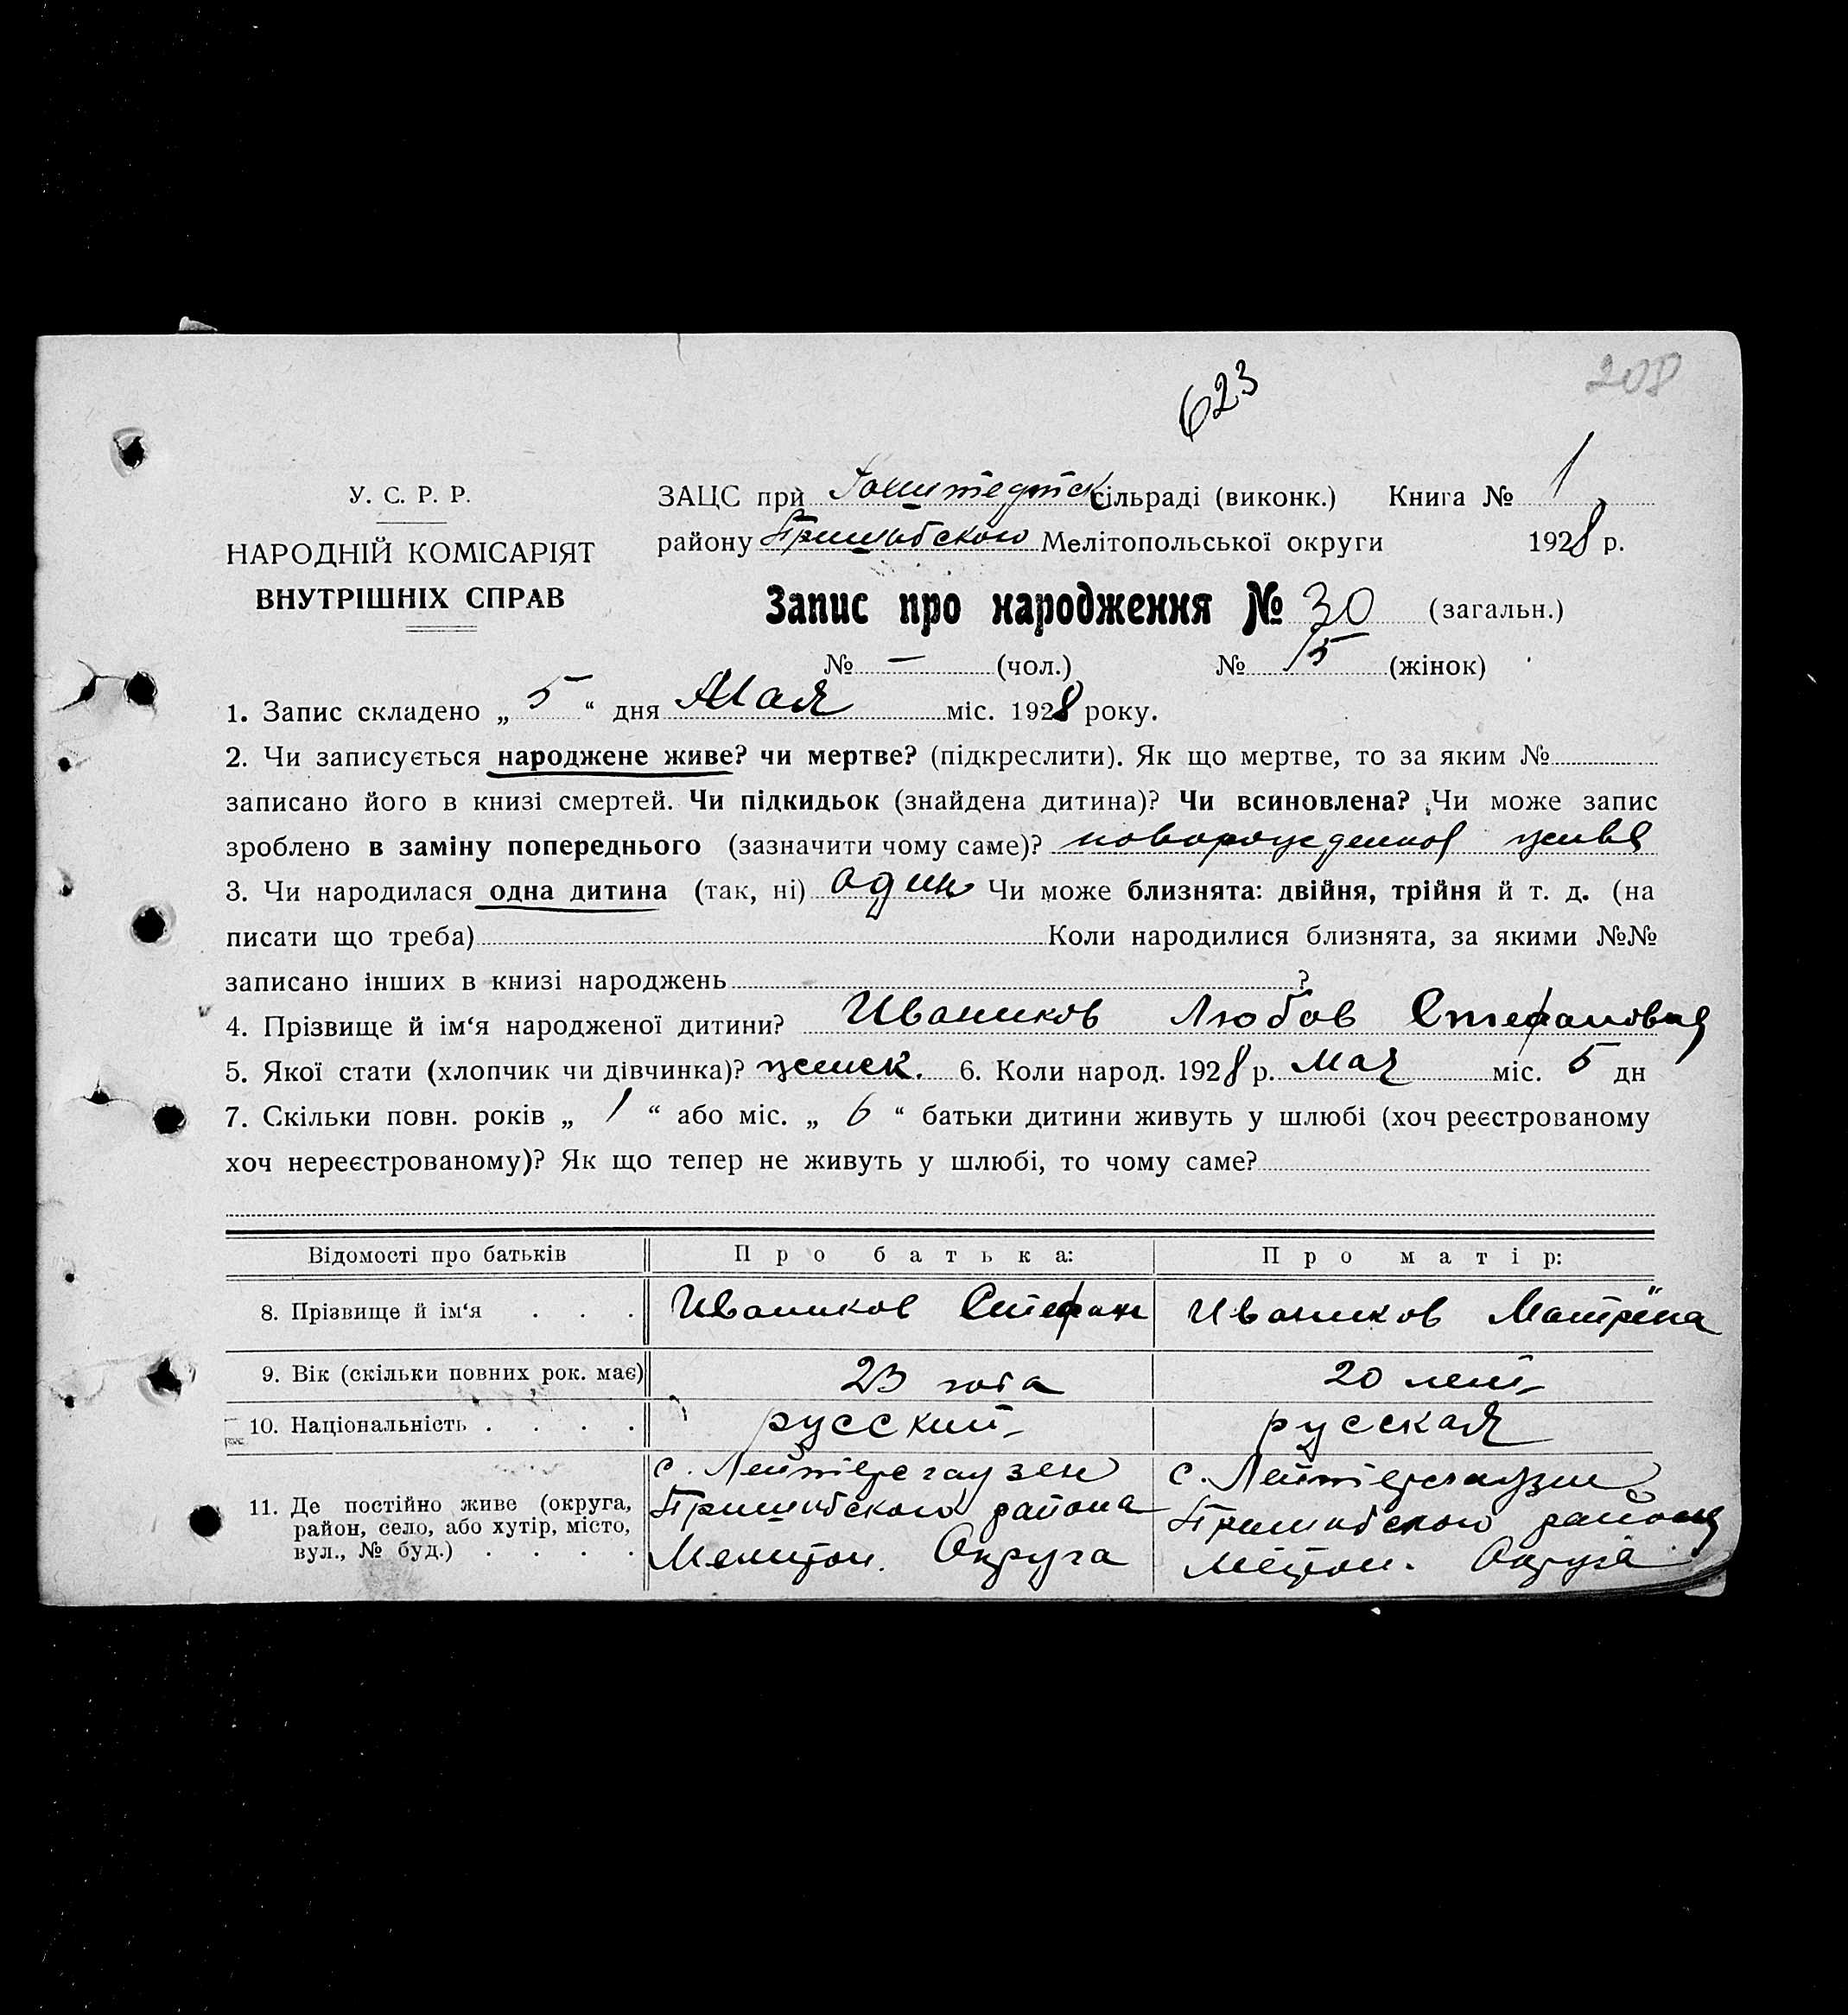 208
623
У. С. Р. Р.
НАРОДНІЙ КОМІСАРІЯТ
ВНУТРІШНІХ СПРАВ
ЗАЦС при сільраді (виконк.) Книга № 1
району Пришибского Мелітопольської округи 1928 р.
Запис про народження № 30 (загальн.)
№ — (чол.) № 15 (жінок)
1. Запис складено „ 5 “ дня Мая міс. 1928 року.
2. Чи записується народжене живе? чи мертве? (підкреслити). Як що мертве, то за яким №
записано його в книзі смертей. Чи підкидьок (знайдена дитина)? Чи всиновлена? Чи може запис
зроблено в заміну попереднього (зазначити чому саме)?
3. Чи народилася одна дитина (так, ні) один Чи може близнята: двійня, трійня й т. д. (на
писати що треба) Коли народилися близнята, за якими №№
записано інших в книзі народжень ?
4. Прізвище й ім‘я народженої дитини? Иваников Любов Стефановна
5. Якої стати (хлопчик чи дівчинка)? женск. 6. Коли народ. 1928 р. Мая міс. 5 дн
7. Скільки повн. років „ 1 “ або міс. „ 6 “ батьки дитини живуть у шлюбі (хоч реєстрованому
хоч нереєстрованому)? Як що тепер не живуть у шлюбі, то чому саме?
Відомості про батьків Про батька: Про матір:
8. Прізвище й ім‘я . . . Иваников Стефан Иваников Матрёна
9. Вік (скільки повних рок. має) 23 года 20 лет
10. Національність . . . . русский русская
11. Де постійно живе (округа, район, село, або хутір, місто, вул., № буд.) . . . .
с. Лейтерсгаузен
Пришибского района
Мелитоп. Округа
с. Лейтерсгаузен
Пришибского района
Округа